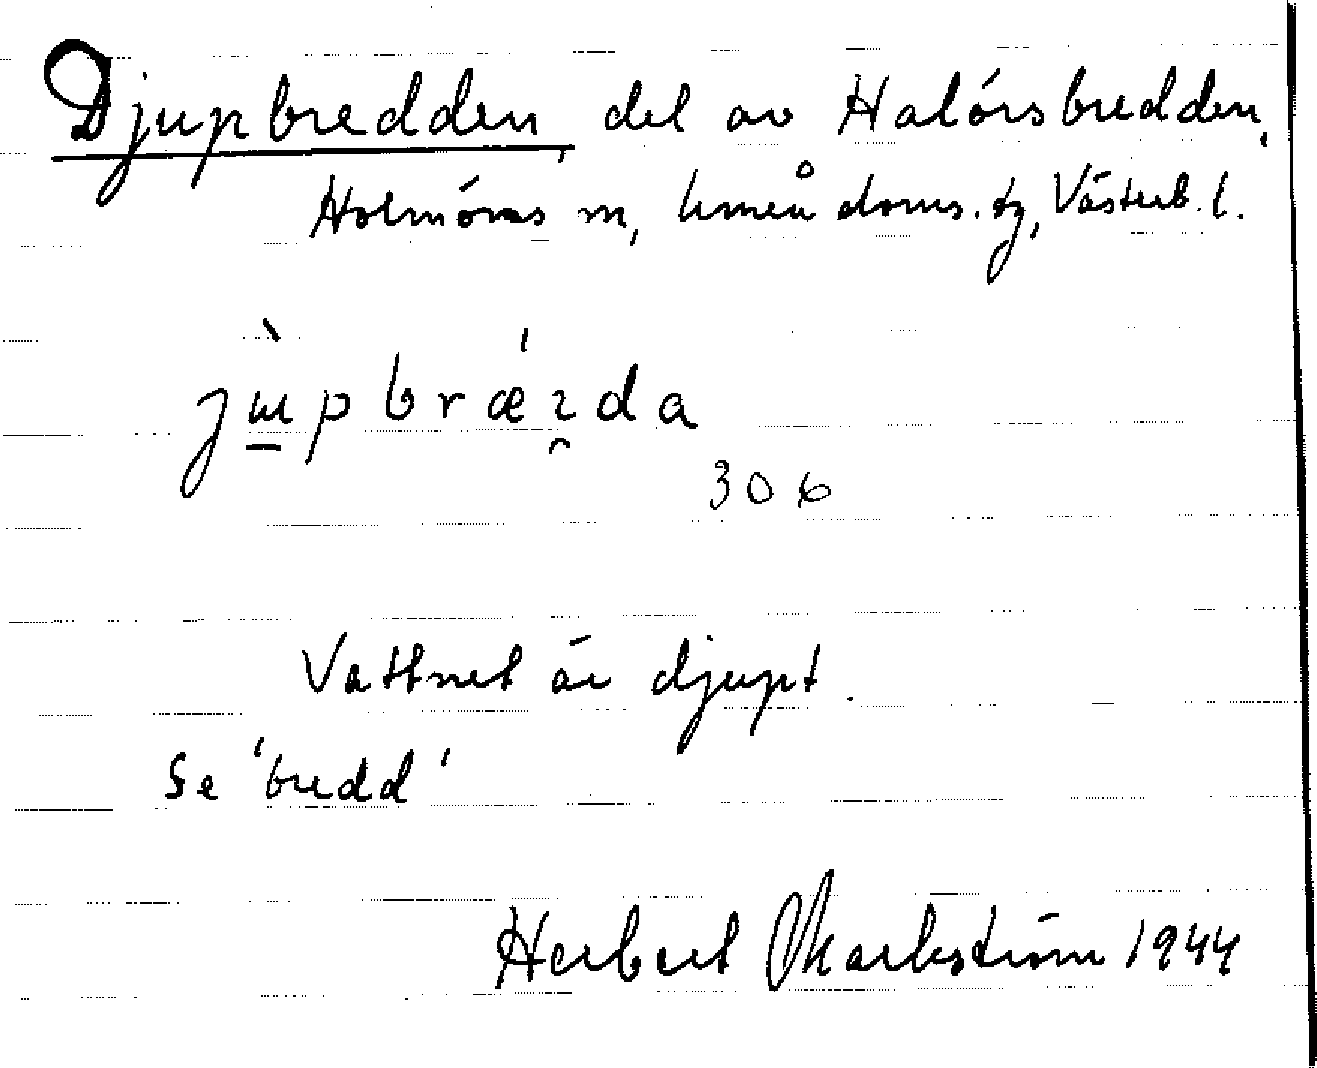 Djupbredden, del av Halörsbredden,
Holmöns sn, Umeå doms. tg, Västerb. l.
306
Vattnet är djupt.
Se 'bredd'
Herbert Markström 1944